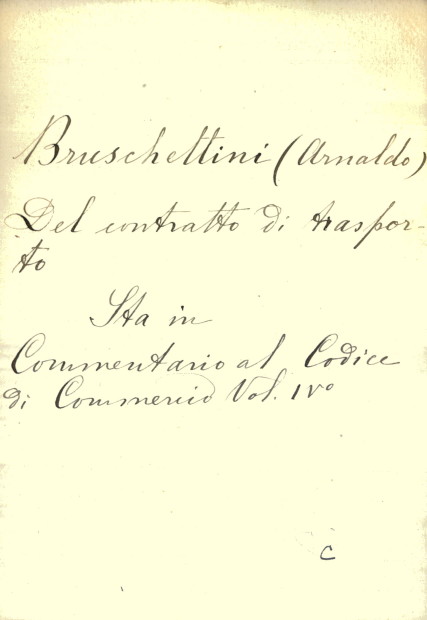 Bruschettini (Arnaldo)
Del contratto di traspor-
to
Sta in
Commentario al Codice
di Commercio Vol. IVo
C